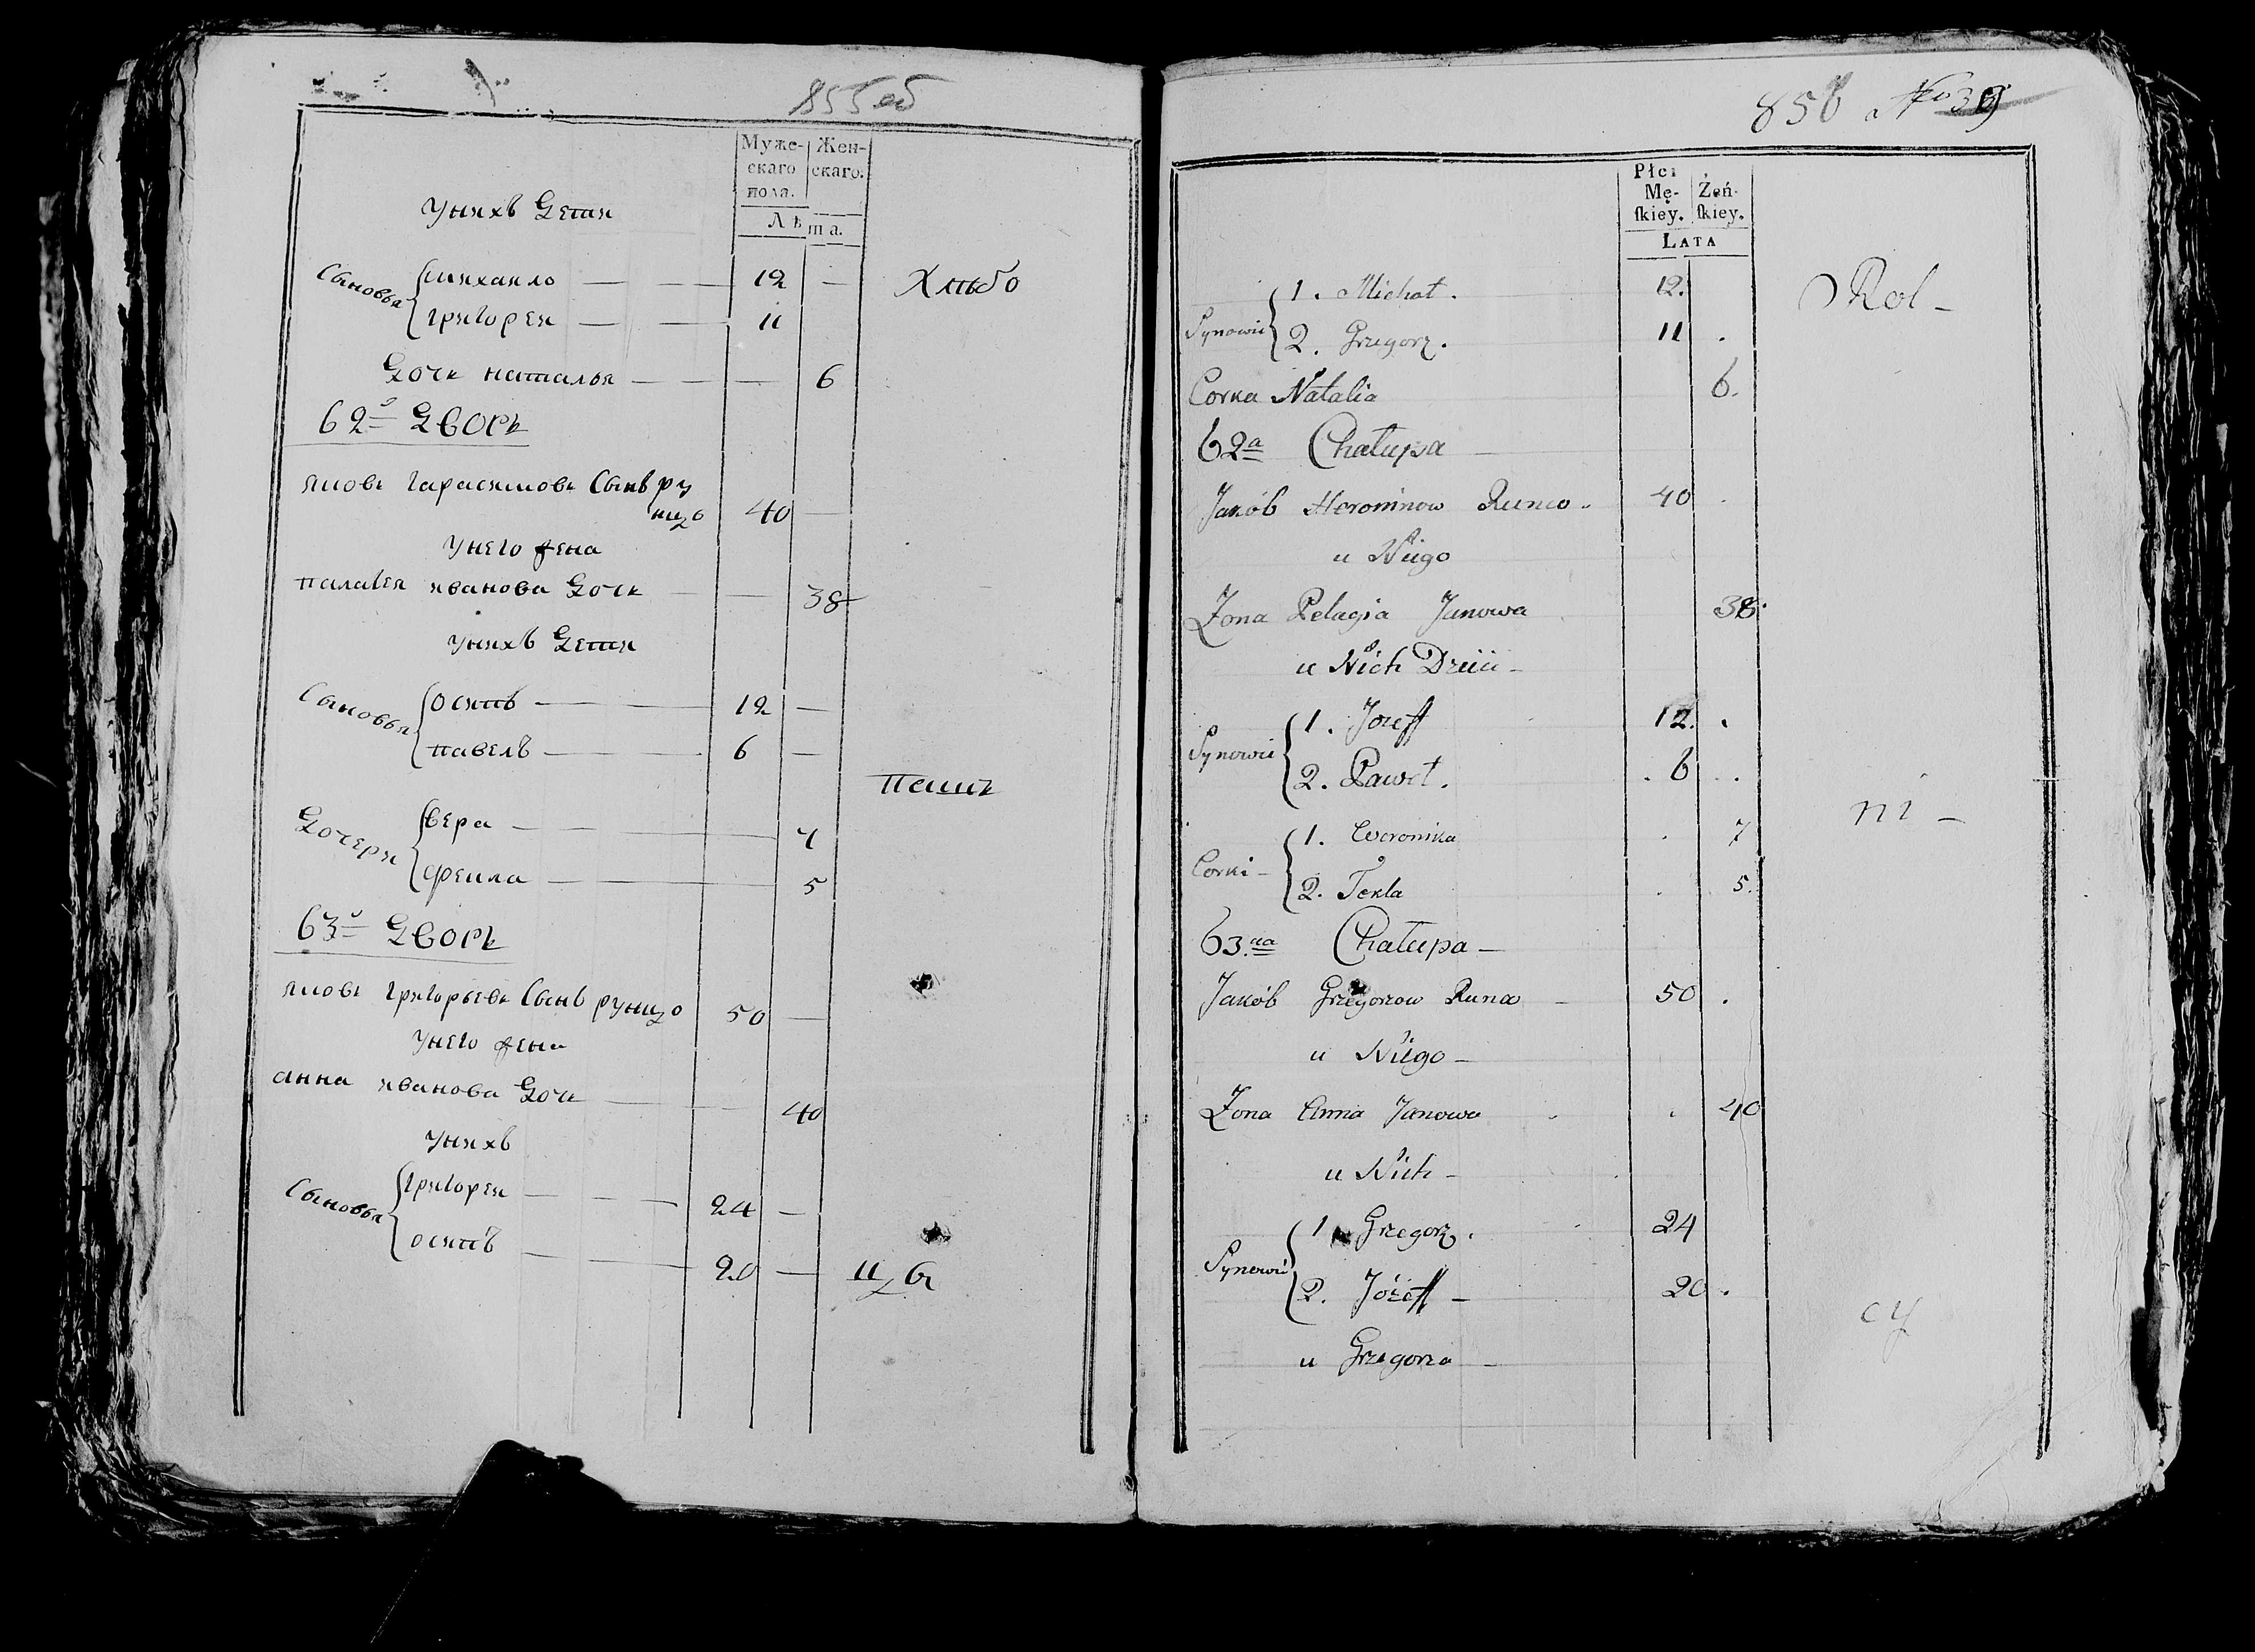 855 об
Муже-
скаго
пола.
Жен-
скаго.
Лѣта.
Унихъ Дети
Сыновья
михаило — — — 12 — Хлѣбо
григореи — — 11
Дочь наталья — — — 6
62й Дворъ
яковъ гарасимовъ Сынъ ру
нцо 40 —
Унего жена
палагея иванова Дочь — — 38
Унихъ Дети
Сыновья
осипъ — — 12 —
павелъ — — 6 —
пашъ
Дочери
вера — — 7
фекла — — 5
63й Дворъ
яковъ григорьевъ Сынъ рунцо 50 —
Унего жена
анна иванова Дочь — — 40
Унихъ
Сыновья
григореи — — — 24 —
осипъ — — 20 — цъ
856 No 39
Płci
Mę-
ſkiey.
Żeń-
ſkiey.
LATA
Synowie
1. Michał. 12. Rol-
2. Grzegorz. 11 .
Corka Natalia 6.
62a Chałupa —
Jakób Heronimow Runco. 40 .
u Niego
Zona Pelagia Janowa 38.
u Nich Dzieci —
Synowie
1. Jozeff 12. .
2. Paweł. . 6 .
ni —
Corki —
1. Weronika . 7
2. Tekla . 5.
63.cia Chałupa —
Jakób Grzegorzow Runco — 50 .
u Niego —
Zona Anna Janowa . . 40
u Nich —
Synowie
1 Grzegorz. 24
2. Józeff — 20 .
cy
u Grzegorza —